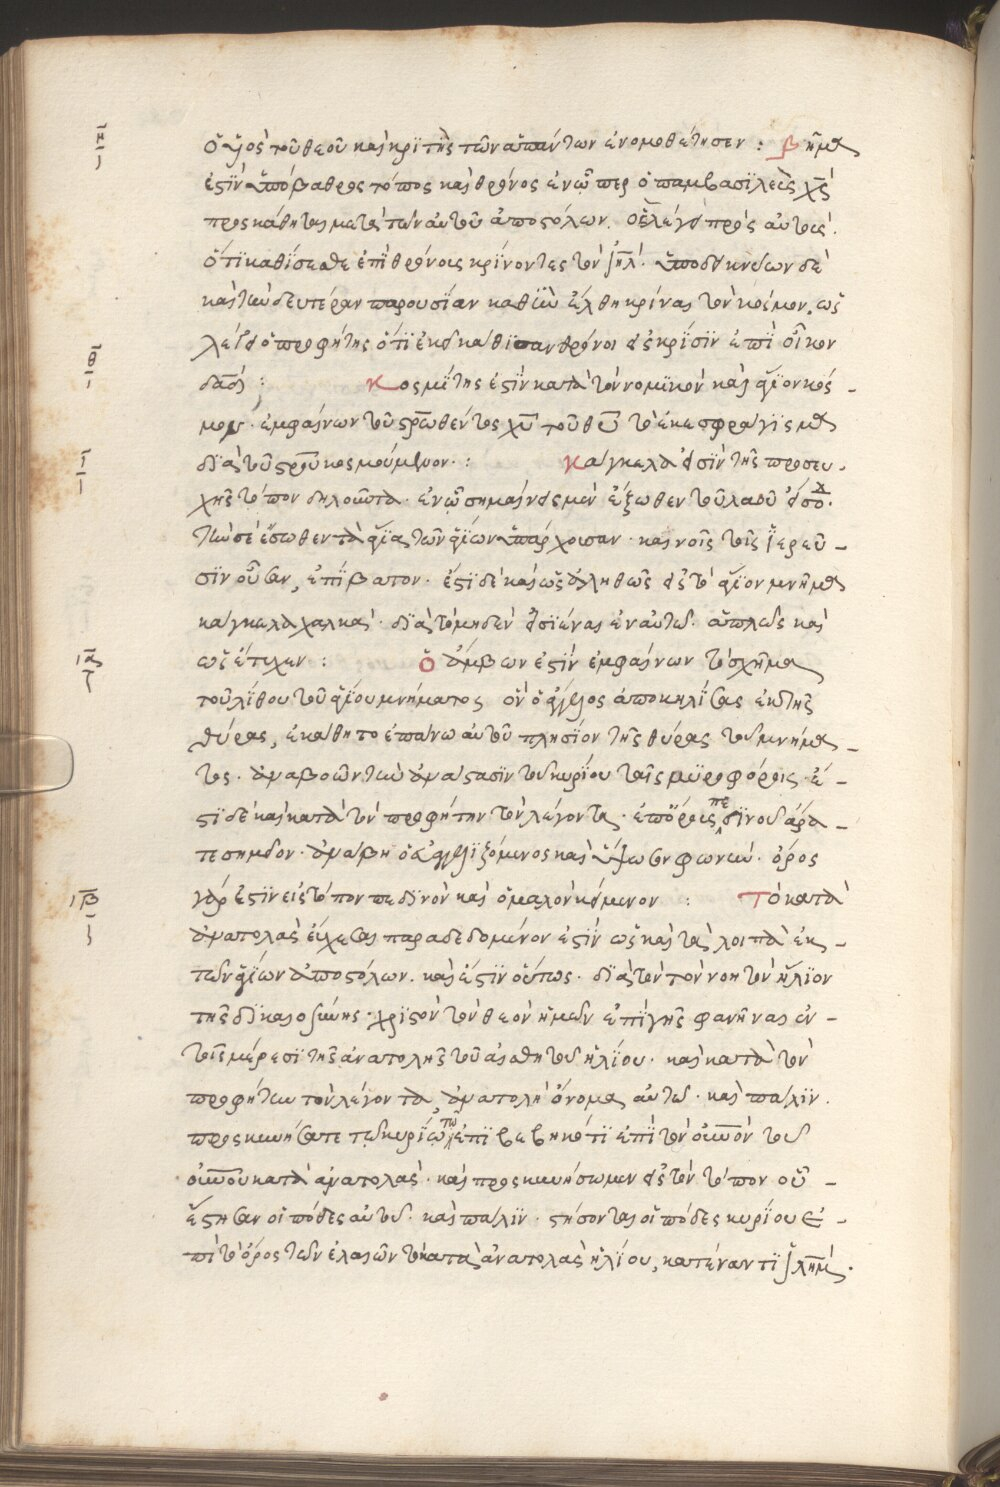 η
ὁ υἱὸς τοῦ θεοῦ καὶ κριτὴς τῶν ἁπάντων ἐνομοθέτησεν : Βῆμα
ἐστὶν ὑπόβαθρος τόπος καὶ θρόνος ἐν ᾧ περ ὁ παμβασιλεὺς χς
προκάθηται μετὰ τῶν αὐτοῦ ἀποστόλων. ὡς λέγει πρὸς αὐτούς.
ὅτι καθίσεσθε ἐπὶ θρόνους κρίνοντες τὸν ιηλ. ὑποδεικνύων δὲ
καὶ τὴν δευτέραν παρουσίαν καθ' ἣν ἔλθη κρίναι τὸν κόσμον. ὡς
λέγει ὁ προφήτης ὅτι ἐκεῖ κάθισαν θρόνοι εἰς κρίσιν ἐπὶ οἶκον
θ
δαδ : Κοσμίτης ἐστὶν κατὰ τὸν νομικὸν καὶ ἅγιον κός-
μον. ἐμφαίνων τοῦ στρωθέντος χυ τοῦ θυ τὸ ἐπισφράγισμα
ι
διὰ τοῦ στρου κοσμούμενον : Κάγκελα εἰσὶν τῆς προσευ-
χῆς τόπον δηλοῦντα. ἐν ᾧ σημαίνει μὲν ἔξωθεν τοῦ λαοῦ εἴσοχ.
τὴν δὲ ἔσωθεν τὰ ἅγια τῶν ἁγίων ὑπάρχουσαν. καὶ μόνοις τοῖς ἱερεῦ-
σιν οὖσαν, ἐπίβατον. ἔστι δὲ καὶ ὡς ἀληθῶς εἰς τὸ ἅγιον μνῆμα
κάγκελα χαλκᾶ. διὰ τὸ μηδὲν εἰσιέναι ἐν αὐτῶ. ἁπλῶς καὶ
ια
ὡς ἔτυχεν : Ὁ ἄμβων ἐστὶν ἐμφαίνων τὸ σχῆμα
τοῦ λίθου τοῦ ἁγίου μνήματος ὃν ὁ ἄγγελος ἀποκυλίσας ἐκ τῆς
θύρας, ἐκάθητο ἐπάνω αὐτοῦ πλησίον τῆς θύρας τοῦ μνήμα-
τος. ἀναβοῶν τὴν ἀνάστασιν τοῦ κυρίου ταῖς μυροφόροις. ἔ-
στι δὲ καὶ κατὰ τὸν προφήτην τὸν λέγοντα. ἐπ' ὄρους πεδινοῦ ἄρα-
τε σημεῖον. ἀνάβηθι ὁ εὐαγγελιζόμενος καὶ ὕψωσον φωνήν. ὄρος
ιβ
γάρ ἐστιν εἰς τόπον πεδινὸν καὶ ὁμαλὸν κείμενον : Τὸ κατὰ
ἀνατολὰς εὔχεσθαι παραδεδομένον ἐστὶν ὡς καὶ τὰ λοιπὰ ἐκ
τῶν ἁγίων ἀποστόλων. καὶ ἔστιν οὕτως. διὰ τὸν τὸν νοητὸν ἥλιον
τῆς δικαιοσύνης. χριστὸν τὸν θεὸν ἡμῶν ἐπὶ γῆς φανῆναι ἐν
τοῖς μέρεσι τῆς ἀνατολῆς τοῦ αἰσθητοῦ ἡλίου. καὶ κατὰ τὸν
προφήτην τὸν λέγοντα, ἀνατολὴ ὄνομα αὐτῶ. καὶ πάλιν.
προσκυνήσατε τῶ κυρίω τῶ ἐπιβεβηκότι ἐπὶ τὸν οὐνὸν τοῦ
οὐνοῦ κατὰ ἀνατολάς. καὶ προσκυνήσωμεν εἰς τὸν τόπον οὗ
ἔστησαν οἱ πόδες αὐτοῦ. καὶ πάλιν. στήσονται οἱ πόδες κυρίου ἐ-
πὶ τὸ ὄρος τῶν ἐλαιῶν τὸ κατὰ ἀνατολὰς ἡλίου, κατέναντι ιλημ.